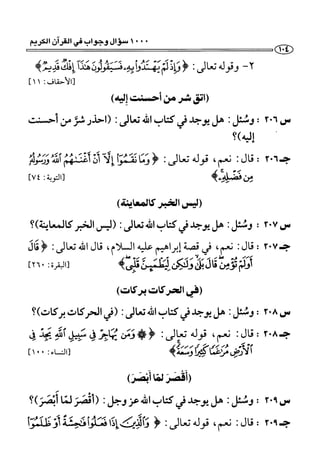 ١٠٠٠ سؤال وجواب في القرآن الكريم
١٠٤
٢- وقوله تعالى: ﴿وَإِذْ لَمْ يَهْتَدُوا بِهِ فَسَيَقُولُونَ هَٰذَا إِفْكٌ قَدِيمٌ﴾
[الأحقاف: ١١]
(اتق شر من أحسنت إليه)
س ٢٠٦ : وسُئل: هل يوجد في كتاب الله تعالى: (احذر شرَّ من أحسنت
إليه)؟
جـ ٢٠٦ : قال: نعم، قوله تعالى: ﴿وَمَا نَقَمُوا إِلَّا أَنْ أَغْنَىٰهُمُ ٱللَّهُ وَرَسُولُهُ
مِن فَضْلِهِ﴾
[التوبة: ٧٤]
(ليس الخبر كالمعاينة)
س ٢٠٧ : وسُئل: هل يوجد في كتاب الله تعالى: (ليس الخبر كالمعاينة)؟
جـ ٢٠٧ : قال: نعم، في قصة إبراهيم عليه السلام، قال الله تعالى: ﴿قَالَ
أَوَلَمْ تُؤْمِن قَالَ بَلَىٰ وَلَٰكِن لِّيَطْمَئِنَّ قَلْبِي﴾
[البقرة: ٢٦٠]
(في الحركات بركات)
س ٢٠٨ : وسُئل: هل يوجد في كتاب الله تعالى: (في الحركات بركات)؟
جـ ٢٠٨ : قال: نعم، قوله تعالى: ﴿۞ وَمَن يُهَاجِرْ فِي سَبِيلِ ٱللَّهِ يَجِدْ فِي
ٱلْأَرْضِ مُرَٰغَمًا كَثِيرًا وَسَعَةً﴾
[النساء: ١٠٠]
(أَقْصَرَ لمّا أَبْصَرَ)
س ٢٠٩ : وسُئل: هل يوجد في كتاب الله عز وجل: (أَقْصَرَ لمّا أَبْصَرَ)؟
جـ ٢٠٩ : قال: نعم، قوله تعالى: ﴿وَٱلَّذِينَ إِذَا فَعَلُوا فَٰحِشَةً أَوْ ظَلَمُوا